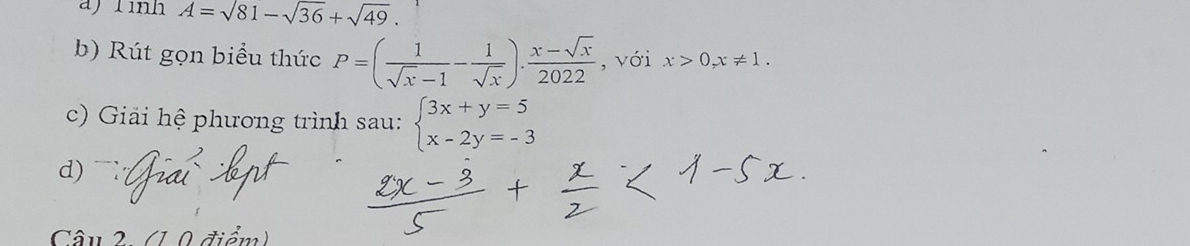 a) Tính A = √81 − √36 + √49 .
b) Rút gọn biểu thức P = (1/(√x − 1) − 1/√x) . (x − √x)/2022 , với x > 0, x ≠ 1 .
c) Giải hệ phương trình sau: { 3x + y = 5
x - 2y = - 3
d) Giải bpt (2x − 3)/5 + x/2 < 1 − 5x.
Câu 2. (1,0 điểm)